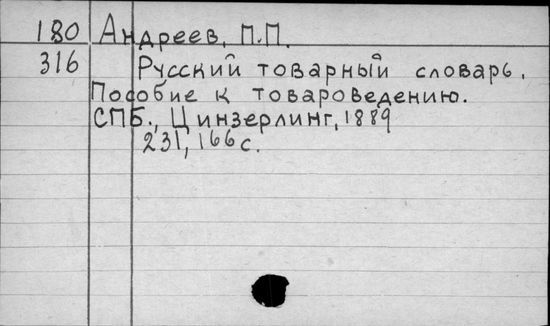 180 Андреев, П.П.
316 Русский товарный словарь.
Пособие к товароведению.
СПБ., Цинзерлинг, 1889
231, 166 с.